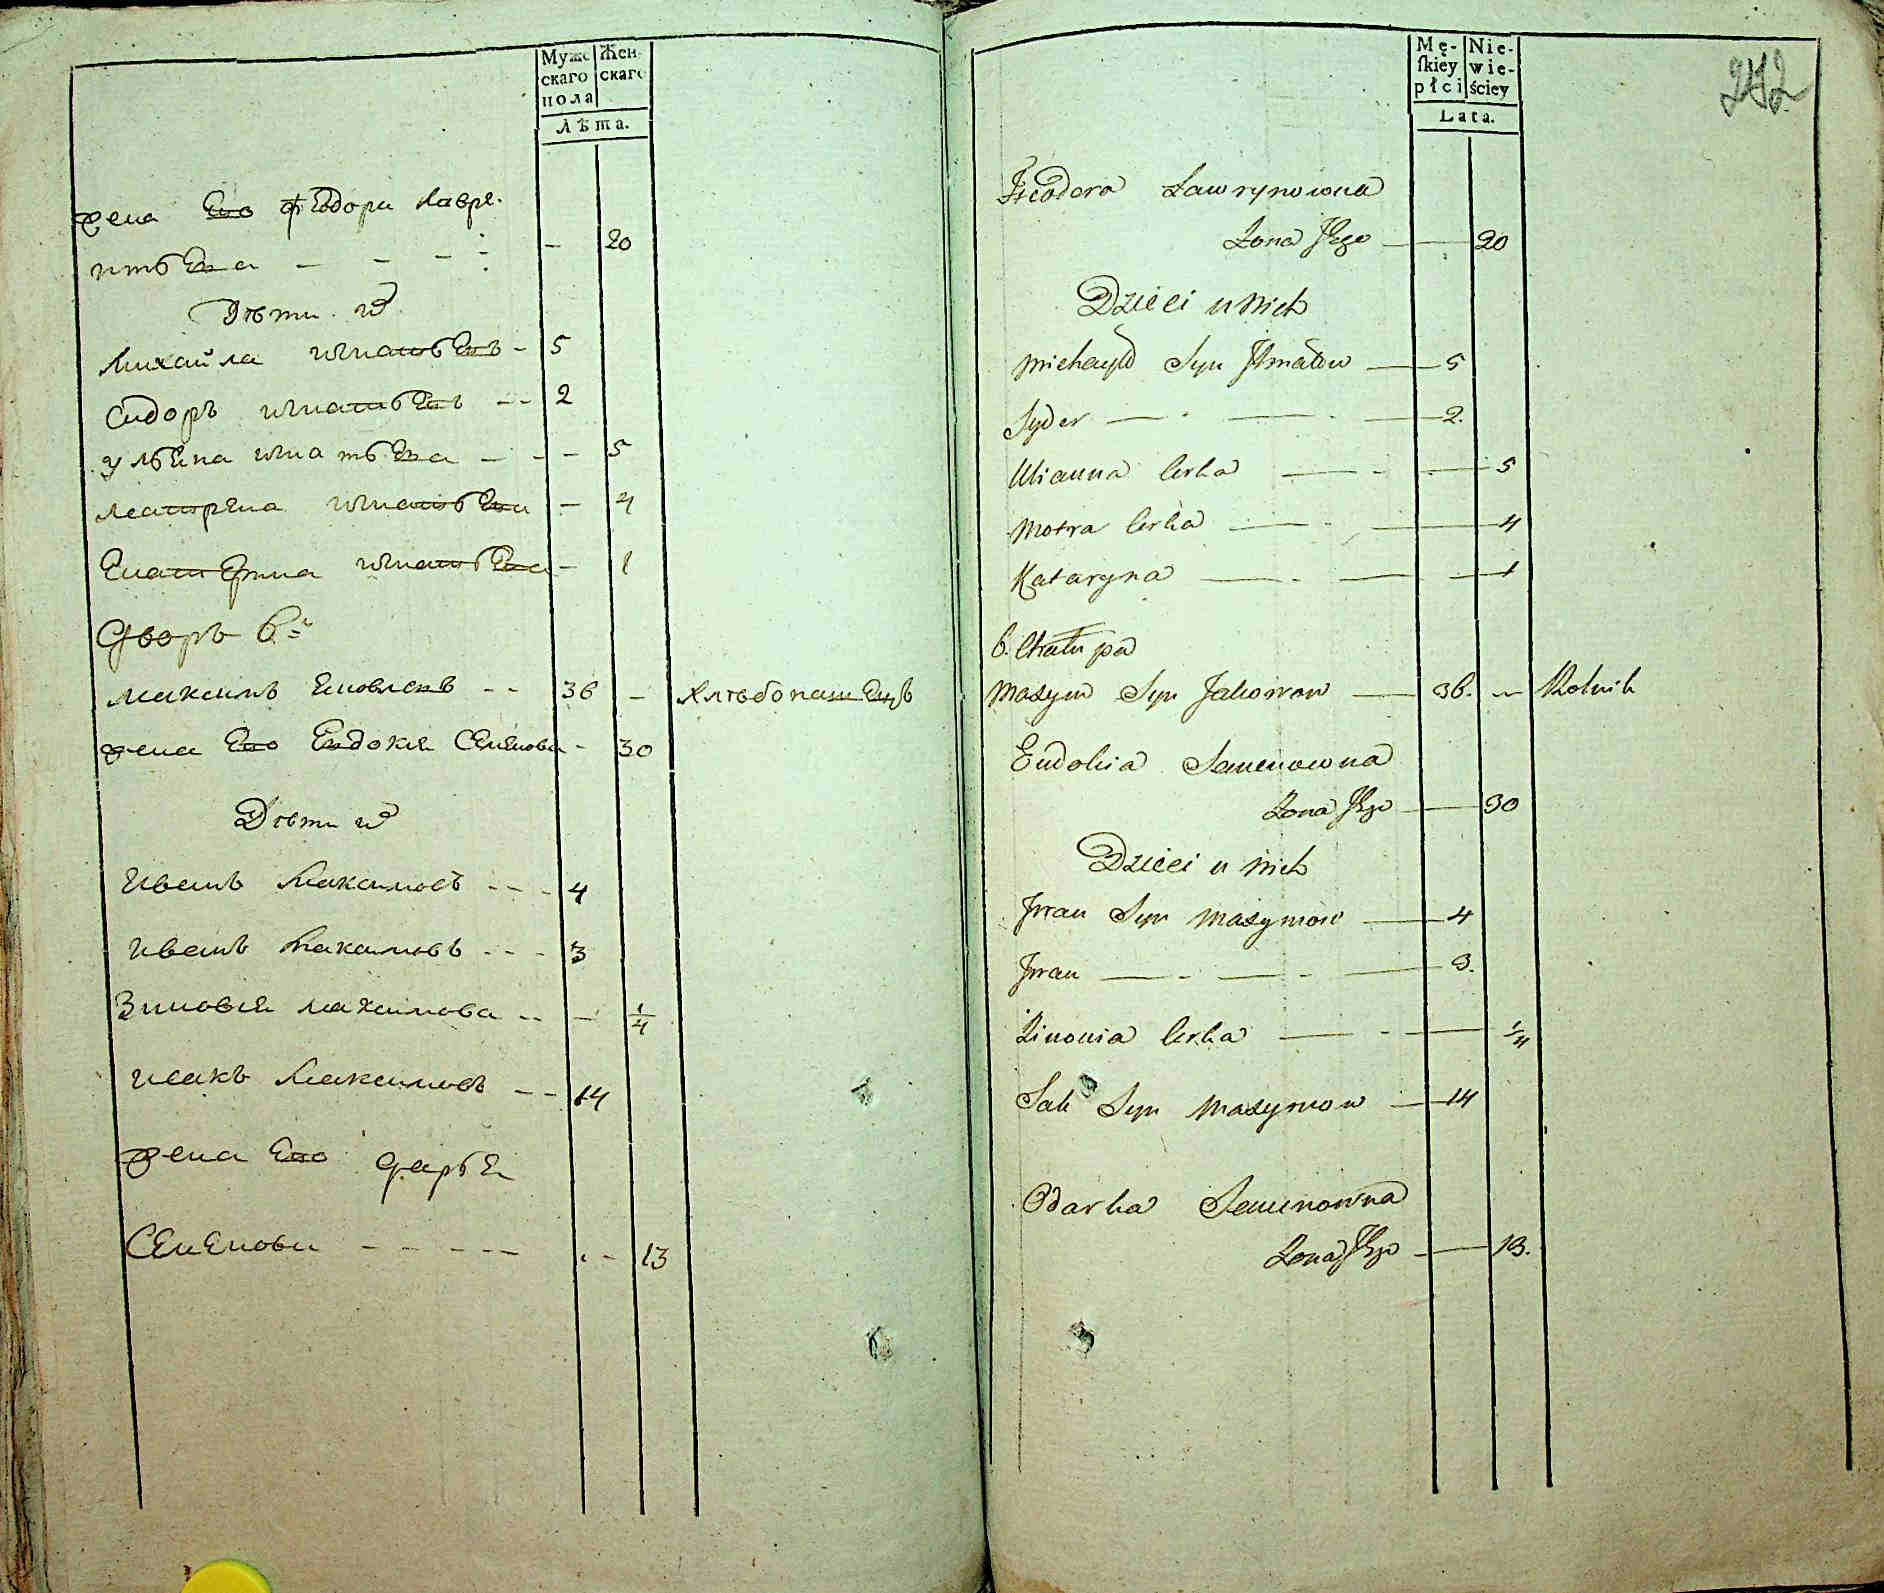 Муже
скаго
пола
Жен
скаго
Лѣта.
жена Его Феодора Лавре.
нтьева — 20
Дѣти их
Михайла игнатьевъ - 5
Сидоръ игнатьевъ - - 2
Ульяна игнатьева - - - 5
Матрена игнатьева - 4
Екатерина игнатьева - 1
Дворъ 6.й
Максимъ Яковлевъ - - 36 - хлѣбопашецъ
жена Его Евдокия Семенова - 30
Дѣти их
Иванъ Максимовъ - - - 4
Иванъ Максимовъ - - - 3
Зиновия Максимова - - - 1/4
исакъ Максимовъ - - 14
жена Его дарья
Семенова - - - - - 13
Mę-
ſkiey
płci
Nie-
wie-
ściey
Lata.
242
Fieodora Ławrynowna
Zona Jego — 20
Dzieci u Nich
Michayło Syn Jhnatow — 5
Syder — 2.
Ulianna Corka — 5
Motra Corka — 4
Kataryna — 1
6. Chałupa
Maxym Syn Jakowow — 36. — Rolnik
Eudokia Semenowna
Zona Jego — 30
Dzieci u Nich
Jwan Syn Maxymow — 4
Jwan — 3.
Zinowia Corka — 1/4
Sak Syn Maxymow — 14
Odarka Semenowna
Zona Jego — 13.